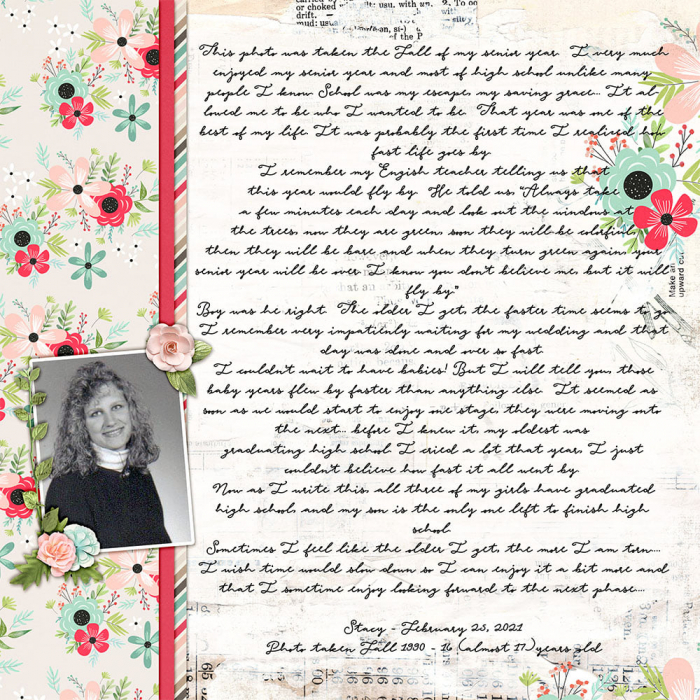 carried by
or choked with dirt: usu. with an. 2. To
drift. —
mud: us
of the P
This photo was taken the Fall of my senior year. I very much
enjoyed my senior year and most of high school unlike many
people I know School was my escape, my saving grace... It al-
lowed me to be who I wanted to be. That year was one of the
best of my life. It was probably the first time I realized how
fast life goes by.
I remember my Engish teacher telling us that
this year would fly by. He told us, "Always take
a few minutes each day and look out the windows at
the trees, now they are green, soon they will be colorful,
then they will be bare and when they turn green again, your
senior year will be over. I know you don't believe me, but it will
fly by."
Make an
upward cu
Boy was he right. The older I get, the faster time seems to go
I remember very impatienly waiting for my wedding and that
day was done and over so fast.
I couldn't wait to have babies! But I will tell you, those
baby years flew by faster than anything else. It seemed as
soon as we would start to enjoy one stage, they were moving onto
the next... before I knew it, my oldest was
graduating high school I cried a lot that year, I just
couldn't believe how fast it all went by.
Now as I write this, all three of my girls have graduated
high school, and my son is the only one left to finish high
school.
Sometimes I feel like the older I get, the more I am torn....
I wish time would slow down so I can enjoy it a bit more and
that I sometime enjoy looking forward to the next phase....
Stacy - February 25, 2021
Photo taken Fall 1990 - 16 (almost 17) years old